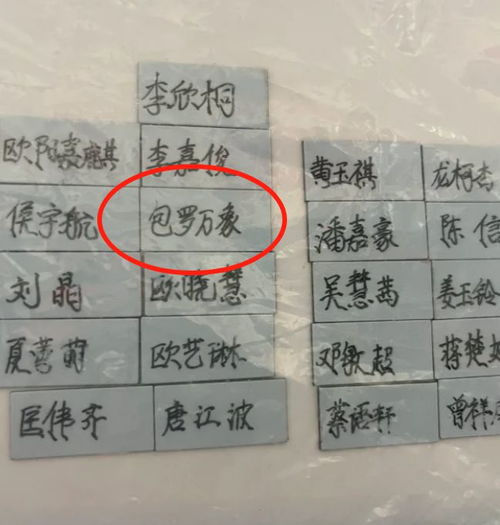 李欣桐
欧阳嘉麒 李嘉俊 黄玉祺 龙柯杏
侯宇航 包罗万象 潘嘉豪 陈信
刘晶 欧晓慧 吴慧茜 姜玉龄
夏蕾萌 欧艺琳 邓敏超 蒋楚
匡伟齐 唐江波 蔡语轩 曾祥